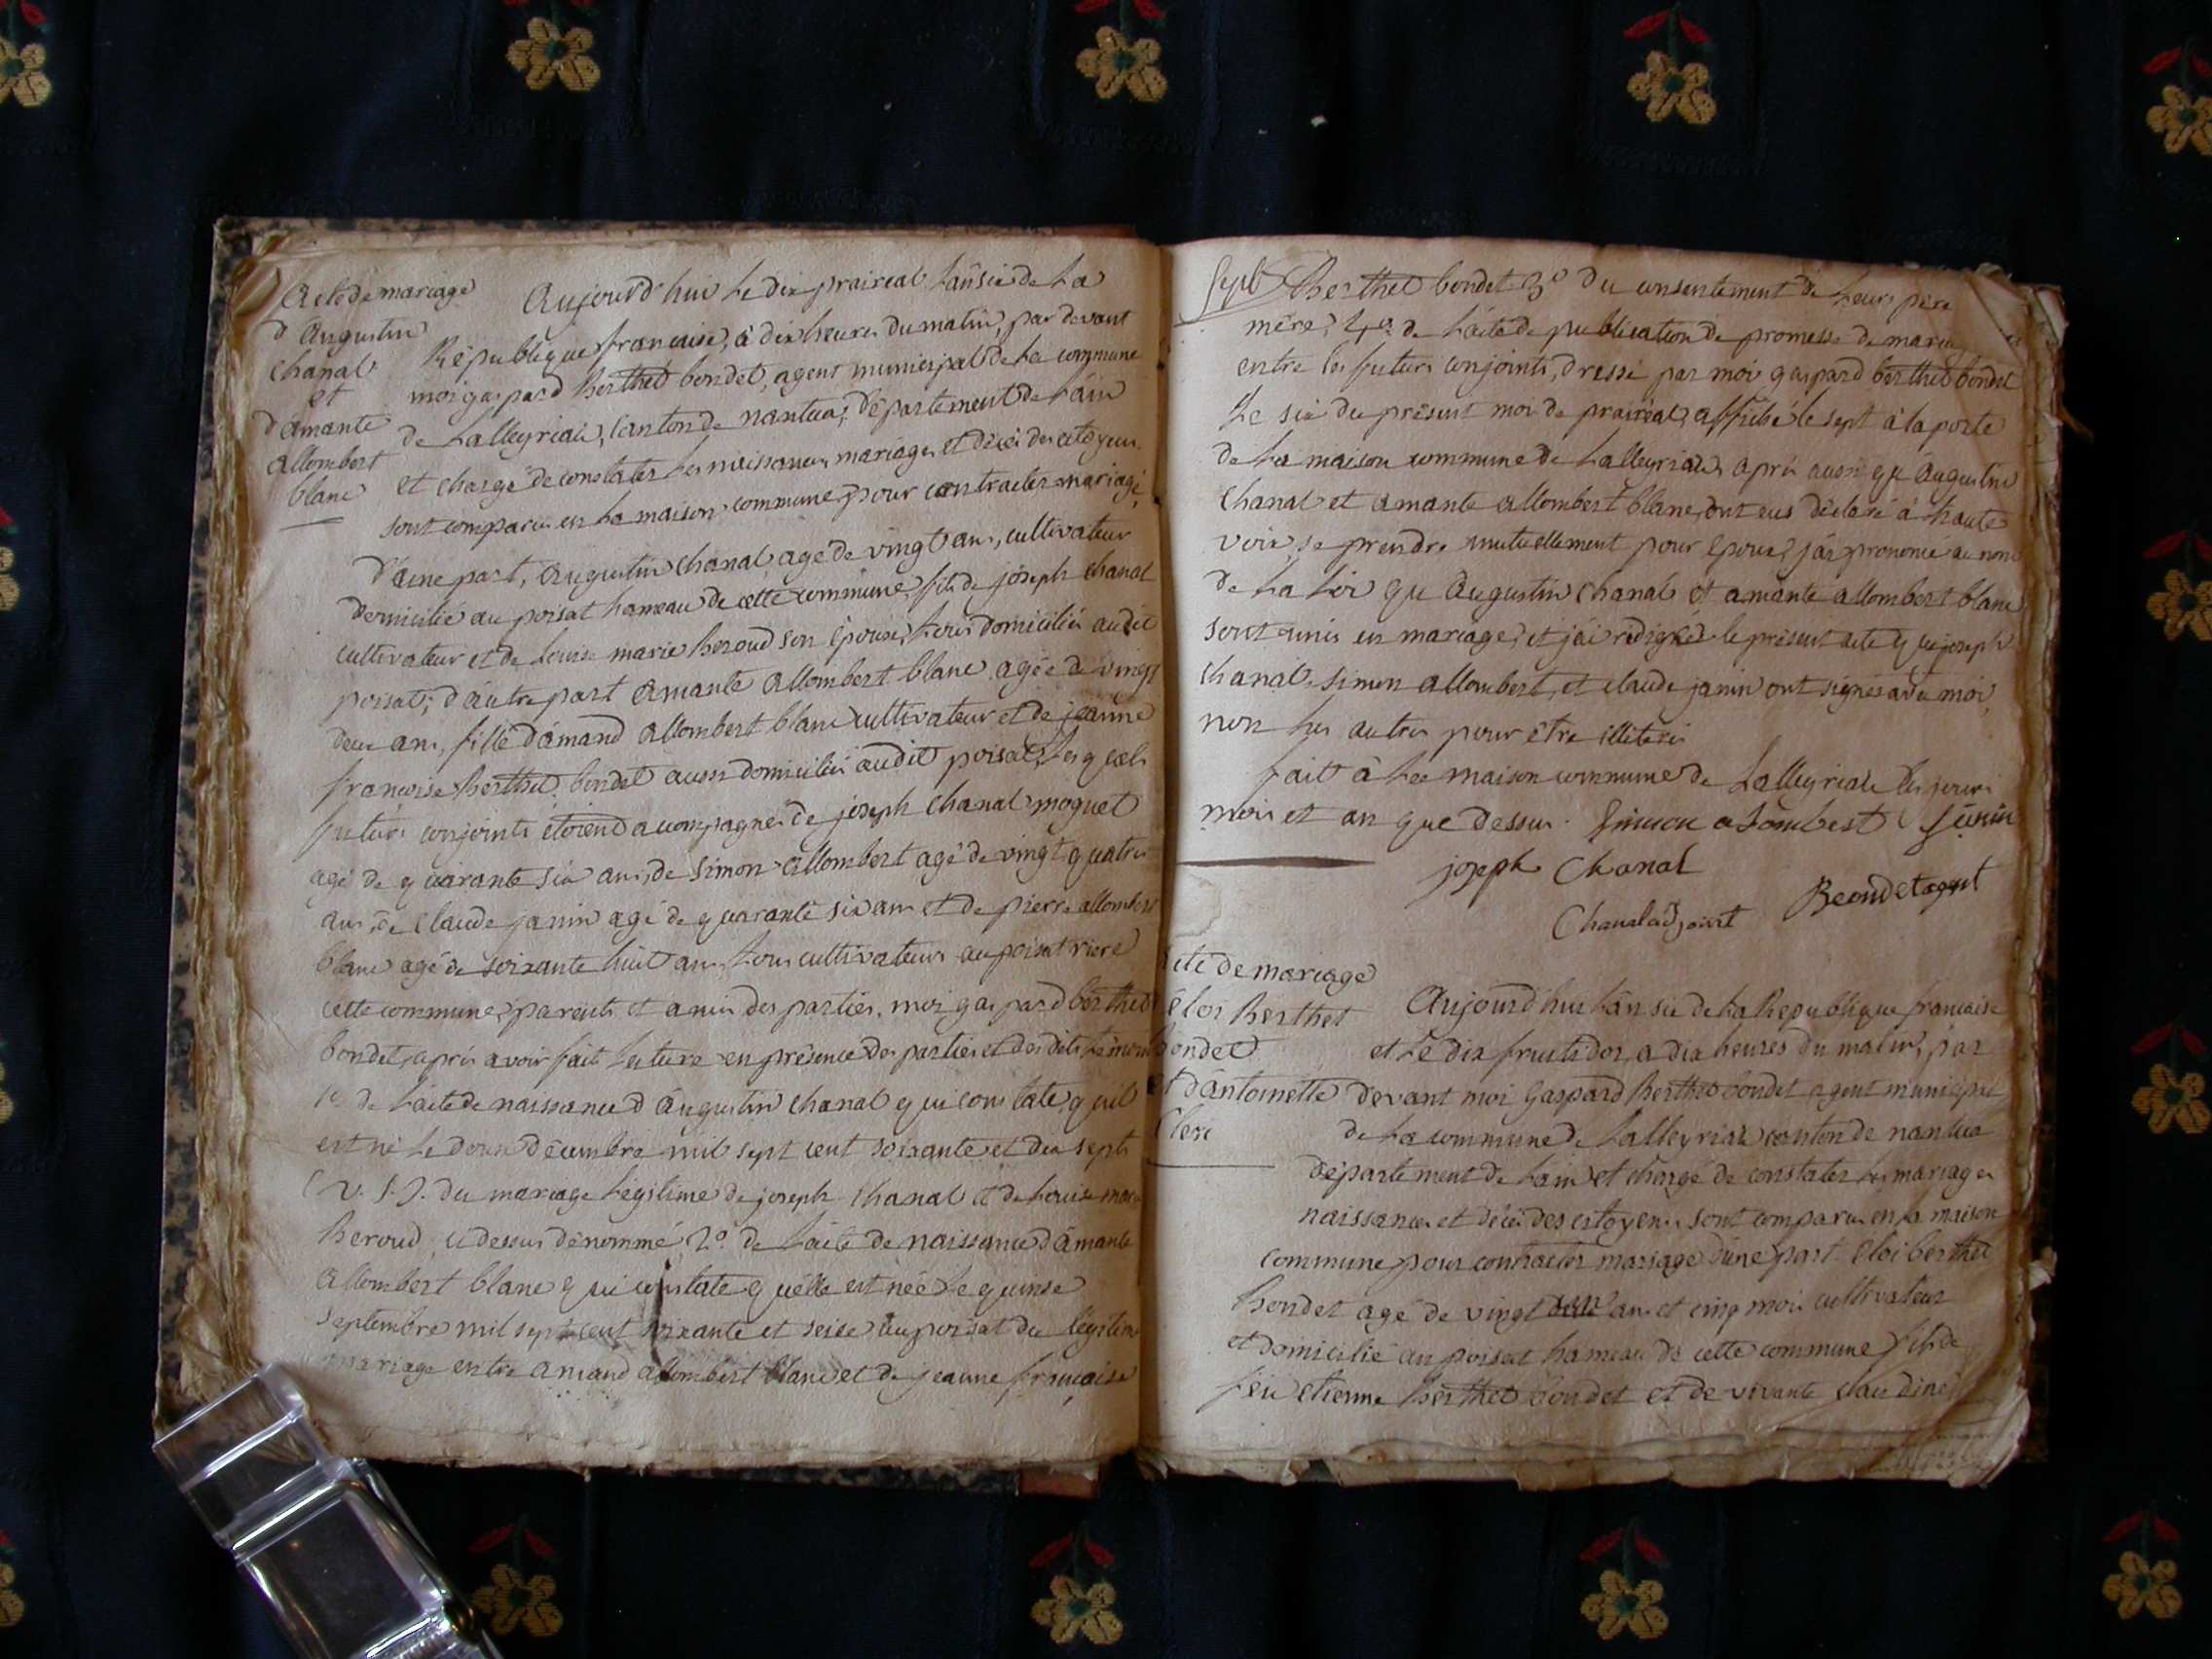 Acte de mariage
d'augustin
chanal
et
d'amante
allombert
blanc
Aujourd'hui le dix prairéal l'an six de la
République francaise, à dix heures du matin, par devant
moi gaspard Berthet bondet, agent municipal de la commune
de Lalleyriat, canton de nantua, département de l'ain
et chargé de constater les naissances mariages et décès des citoyens.
sont comparus en la maison commune, pour contracter mariage,
d'une part, augustin chanal agé de vingt ans, cultivateur
domicilié au poisat hameau de cette commune fils de joseph chanal
cultivateur et de Louise marie Beroud son épouse, tous domiciliés audit
poisat; d'autre part amante allombert blanc agée de vingt
deux ans, fille d'amand allombert blanc cultivateur et de jeanne
francoise Berthet bondet aussi domiciliés audit poisat, lesquels
futurs conjoints étoiend acompagnés de joseph chanal moquet
agé de quarante six ans, de simon allombert agé de vingt quatre
ans, de claude janin agé de quarante six ans et de pierre allombert
blanc agé de soixante huit ans tous cultivateurs au poisat riere
cette commune, parents et amis des parties, moi gaspard berthet
bondet, après avoir fait lecture en présence des parties et desdits témoins
1º. de l'acte de naissance d'augustin chanal qui constate qu'il
est né le douze décembre mil sept cent soixante et dix sept
(v. s.). du mariage légitime de joseph chanal et de Louise marie
Beroud ci dessus dénommé 2º. de l'acte de naissance d'amante
allombert blanc qui constate qu'elle est née le quinse
septembre mil sept cent soixante et seise au poisat du légitime
mariage entre amand allombert blanc et de jeanne francoise
Sept Berthet bondet 3º du consentement de leurs père
mère, 4º. de l'acte de publication de promesse de mariage
entre les futurs conjoints, dressé par moi gaspard berthet bondet
le six du présent moi de prairéal affiché le sept à la porte
de la maison commune de Lalleyriat, après aussi que augustin
chanal et amante allombert blanc, ont eus déclaré à haute
voix se prendre mutuellement pour époux, j'ai prononcé au nom
de la loi que augustin chanal et amante allombert blanc
sont unis en mariage, et j'ai redigé le présent acte que joseph
chanal simon allombert, et claude janin ont signés avec moi,
non les autres pour être illiterés
fait à la maison commune de Lalleyriat les jours
mois et an que dessus. Simon alombert Janin
joseph Chanal
Chanal adjoint Beondet agent
acte de mariage
éloi Berthet
bondet
et d'antoinette
Clerc
Aujourd'hui l'an six de la République francaise
et le dix fructidor, a dix heures du matin, par
devant moi Gaspard Berthet bondet agent municipal
de la commune de Lalleyriat canton de nantua
département de l'ain et chargé de constater les mariages
naissances et décès des citoyens sont comparus en la maison
commune pour contracter mariage d'une part Eloi berthet
bondet agé de vingt ans et cinq mois cultivateur
et domicilié au poisat hameau de cette commune fils de
feu etienne Berthet bondet et de vivante claudine